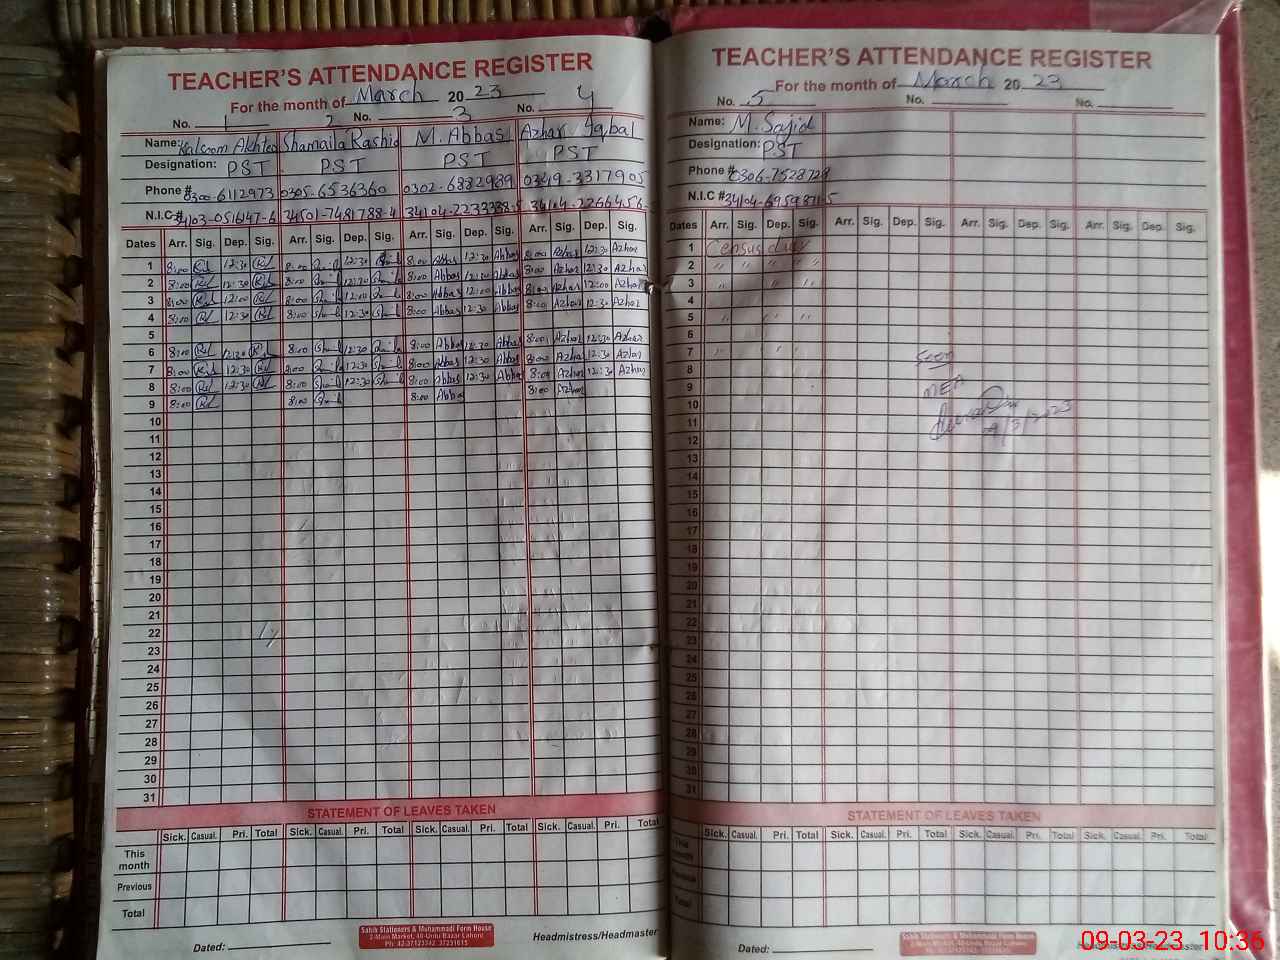 TEACHER'S ATTENDANCE REGISTER
For the month of March 2023
No. 1 2 No. 3 No. 4
Name: Kalsoom Akhter Shamaila Rashid M. Abbas Azhar Iqbal
Designation: PST PST PST PST
Phone # 0300-6112973 0305-6536360 0302-6882989 0349-3317905
N.I.C #
Dates Arr. Sig. Dep. Sig. Arr. Sig. Dep. Sig. Arr. Sig. Dep. Sig. Arr. Sig. Dep. Sig.
1 8:00 12:30 8:00 12:30 8:00 Abbas 12:30 Abbas 8:00 Azhar 12:30 Azhar
2 8:00 12:30 8:00 12:30 8:00 Abbas 12:30 Abbas 8:00 Azhar 12:30 Azhar
3 8:00 12:00 8:00 12:00 8:00 Abbas 12:00 Abbas 8:00 Azhar 12:00 Azhar
4 8:00 12:30 8:00 12:30 8:00 Abbas 12:30 Abbas 8:00 Azhar 12:30 Azhar
5
6 8:00 12:30 8:00 12:30 8:00 Abbas 12:30 Abbas 8:00 Azhar 12:30 Azhar
7 8:00 12:30 8:00 12:30 8:00 Abbas 12:30 Abbas 8:00 Azhar 12:30 Azhar
8 8:00 12:30 8:00 12:30 8:00 Abbas 12:30 Abbas 8:00 Azhar 12:30 Azhar
9 8:00 8:00 8:00 Abbas 8:00 Azhar
10
11
12
13
14
15
16
17
18
19
20
21
22
23
24
25
26
27
28
29
30
31
STATEMENT OF LEAVES TAKEN
Sick. Casual. Pri. Total Sick. Casual. Pri. Total Sick. Casual. Pri. Total Sick. Casual. Pri. Total
This month
Previous
Total
Dated:
Sahib Stationers & Muhammadi Form House
2-Main Market, 40-Urdu Bazar Lahore
Ph: 42-37123342, 37231615
Headmistress/Headmaster
TEACHER'S ATTENDANCE REGISTER
For the month of March 2023
No. 5 No. No.
Name: M. Sajid
Designation: PST
Phone # 0306-7528729
N.I.C #
Dates Arr. Sig. Dep. Sig. Arr. Sig. Dep. Sig. Arr. Sig. Dep. Sig. Arr. Sig. Dep. Sig.
1 Census duty
2 " " " "
3 " " " "
4 " " " "
5 " " " "
6
7 " " "
8
9 MEA
10
11 9/3/2023
12
13
14
15
16
17
18
19
20
21
22
23
24
25
26
27
28
29
30
31
STATEMENT OF LEAVES TAKEN
Sick. Casual. Pri. Total Sick. Casual. Pri. Total Sick. Casual. Pri. Total Sick. Casual. Pri. Total
This month
Total
Dated:
Sahib Stationers & Muhammadi Form House
2-Main Market, 40-Urdu Bazar Lahore
Headmistress/Headmaster
09-03-23 10:36